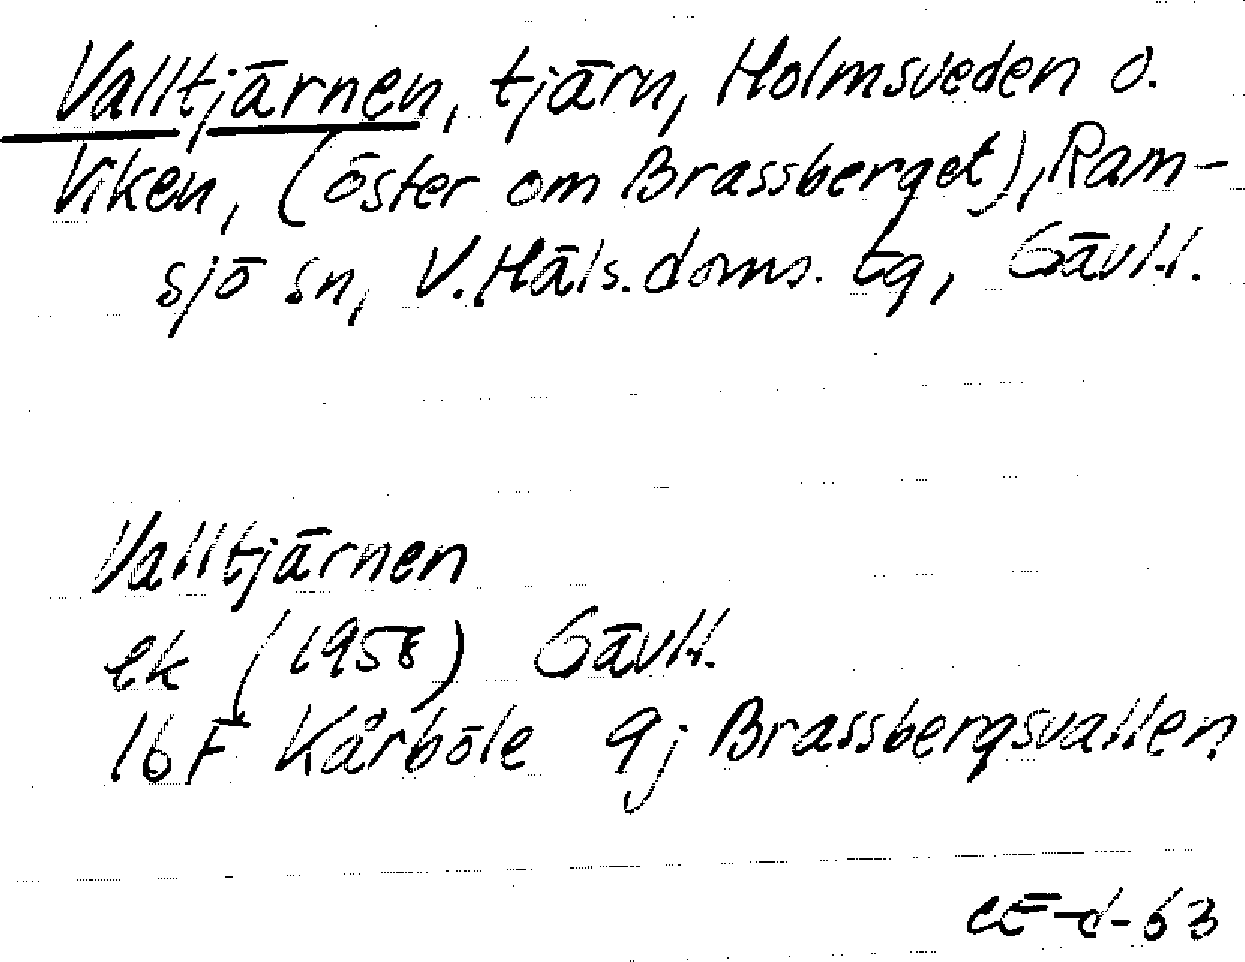 Valltjärnen, tjärn, Holmsveden o.
Viken, (öster om Brassberget), Ram-
sjö sn, V. Häls. doms. tg, Gävl.l.
Valltjärnen
ek (1958) Gävl.l.
16F Kårböle 9j Brassbergsvallen